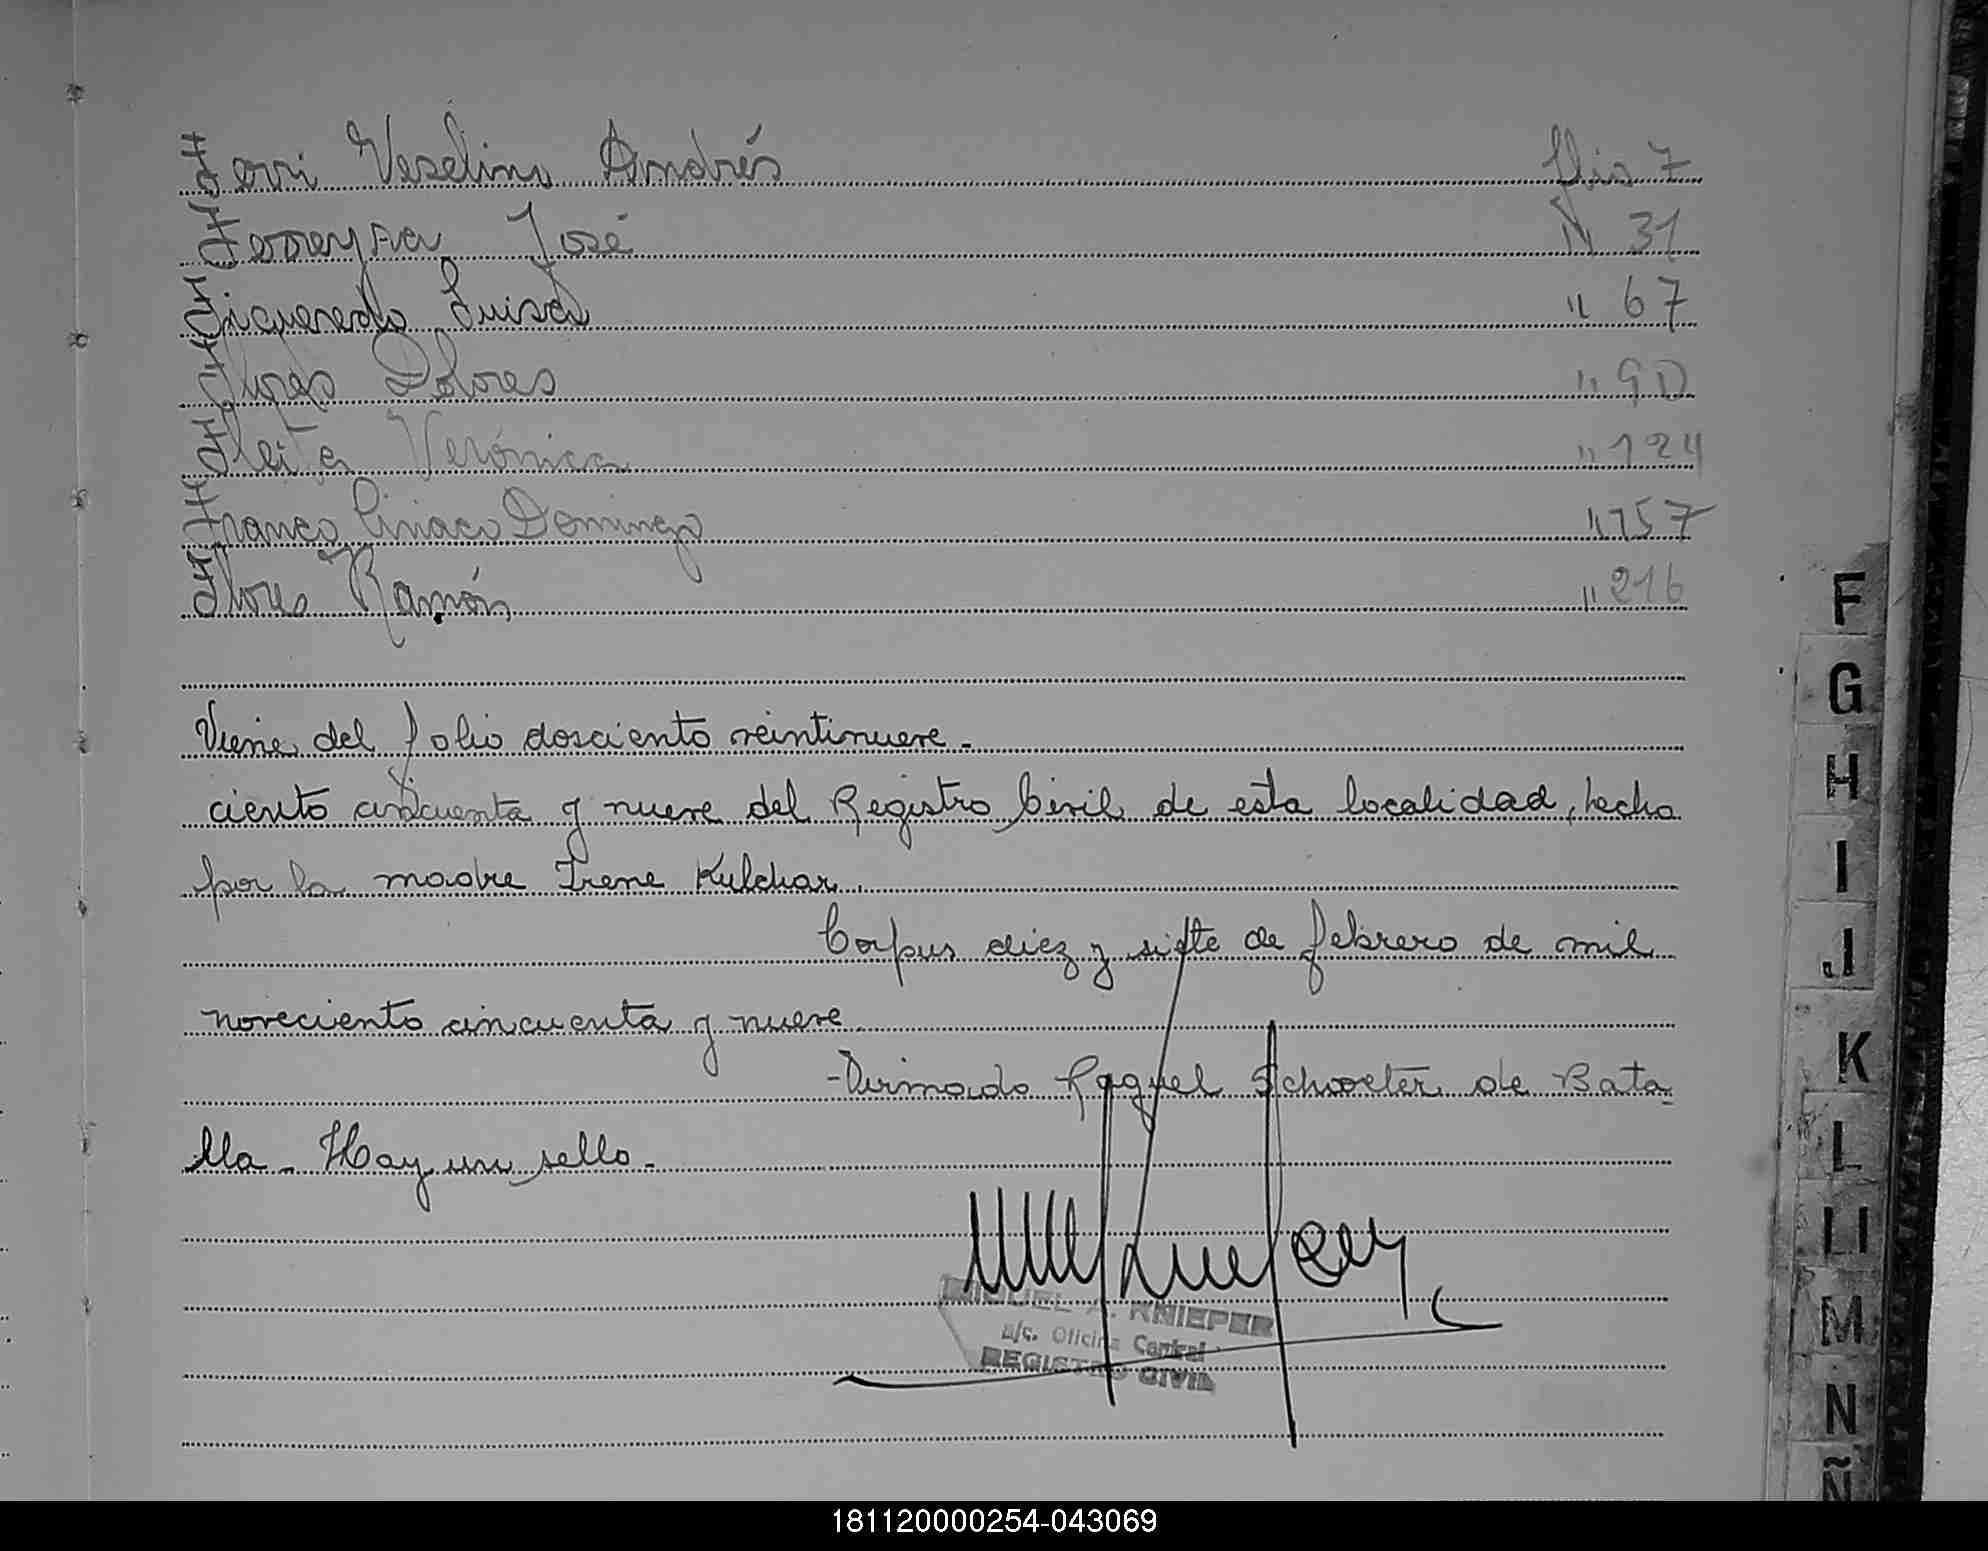 Ferri Veselino Andrés folio 7
Ferreyra José " 31
Figueredo Luisa " 67
Flores Dolores " 90
Fleita Verónica " 124
Franco Ciriaco Domingo " 157
Flores Ramón " 216
Viene del folio dosciento veintinueve.
ciento cincuenta y nueve del Registro Civil de esta localidad, hecho
por la madre Irene Kulchar.
Corpus diez y siete de febrero de mil
noveciento cincuenta y nueve.
-Firmado Raquel Schroeter de Bata
lla - Hay un sello.-
MIGUEL A. KNIEPER
a/c. Oficina Central
REGISTRO CIVIL
F
G
H
I
J
K
L
Ll
M
N
Ñ
181120000254-043069